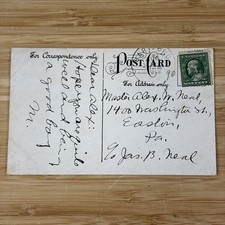 For Correspondence only
POST CARD
For Address only
Dear Alex:
Hope you are quite
well and being
a good boy
M.
Master Alex. M. Neal,
1400 Washington St.,
Easton,
Pa.
c/o Jas. B. Neal